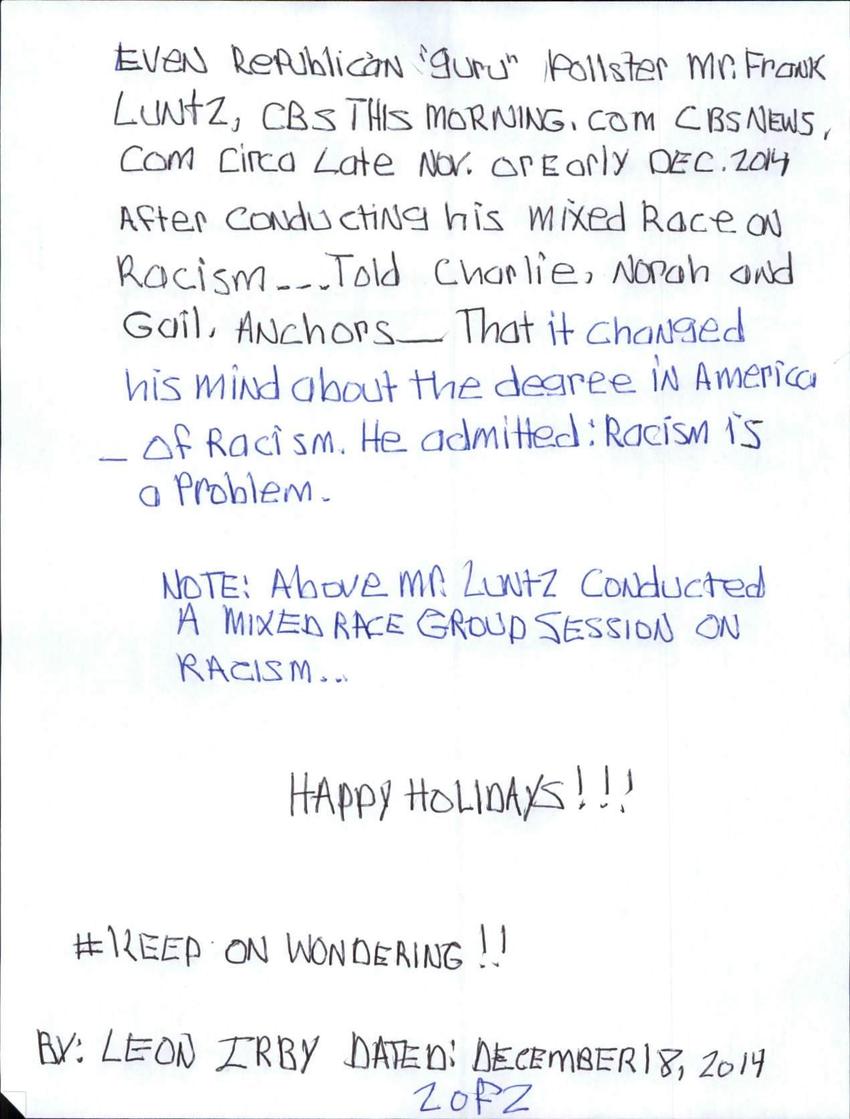 EVEN RePUblicaN "guru" Pollster Mr. Frank
LUNtZ, CBS THIS MORNING. COM CBSNEWS.
Com Circa Late Nov. or Early DEC. 2014
After CONDUctiNg his mixed Race ON
Racism---Told Charlie, Norah and
Gail, ANchors__ That it changed
his miND about the degree iN America
_ of Racism. He admitted: Racism is
a Problem.
NOTE: Above Mr. LuNtZ CONDUcted
A MIXED RACE GROUP SESSION ON
RACISM...
HAPPY HOLIDAYS!!!
#KEEP ON WONDERING!!
BY: LEON IRBY DATED: DECEMBER 18, 2014
2 of 2